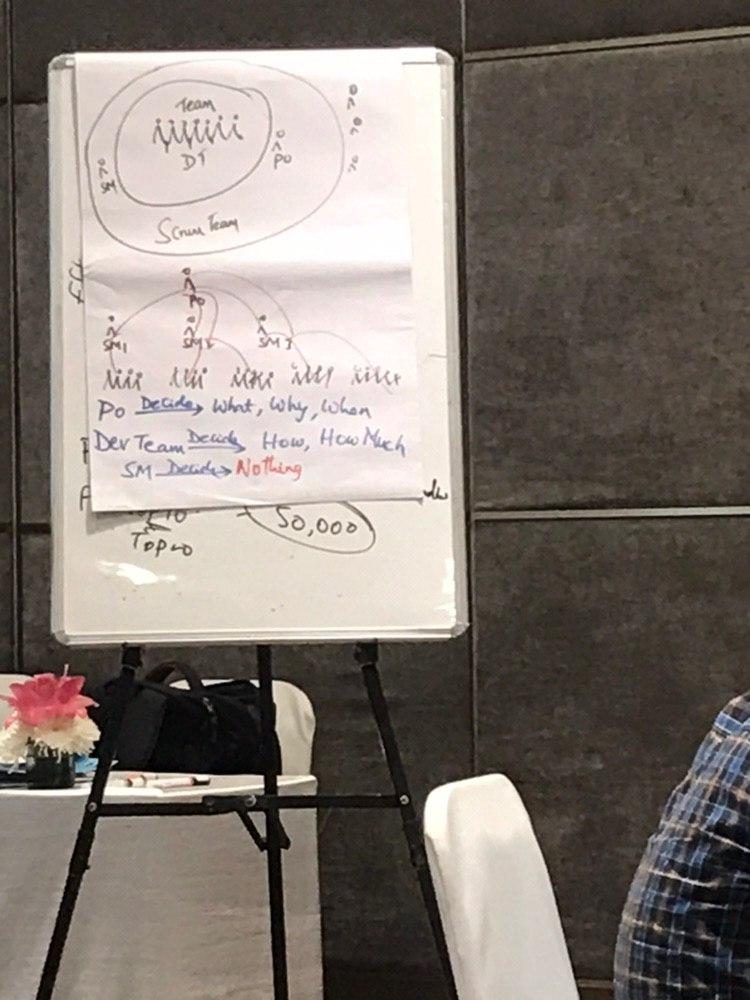 Team
DT
PO
SM
Scrum Team
PO
SM1 SM2 SM3
PO Decide What, Why, When
Dev Team Decide How, How Much
SM Decide Nothing
50,000